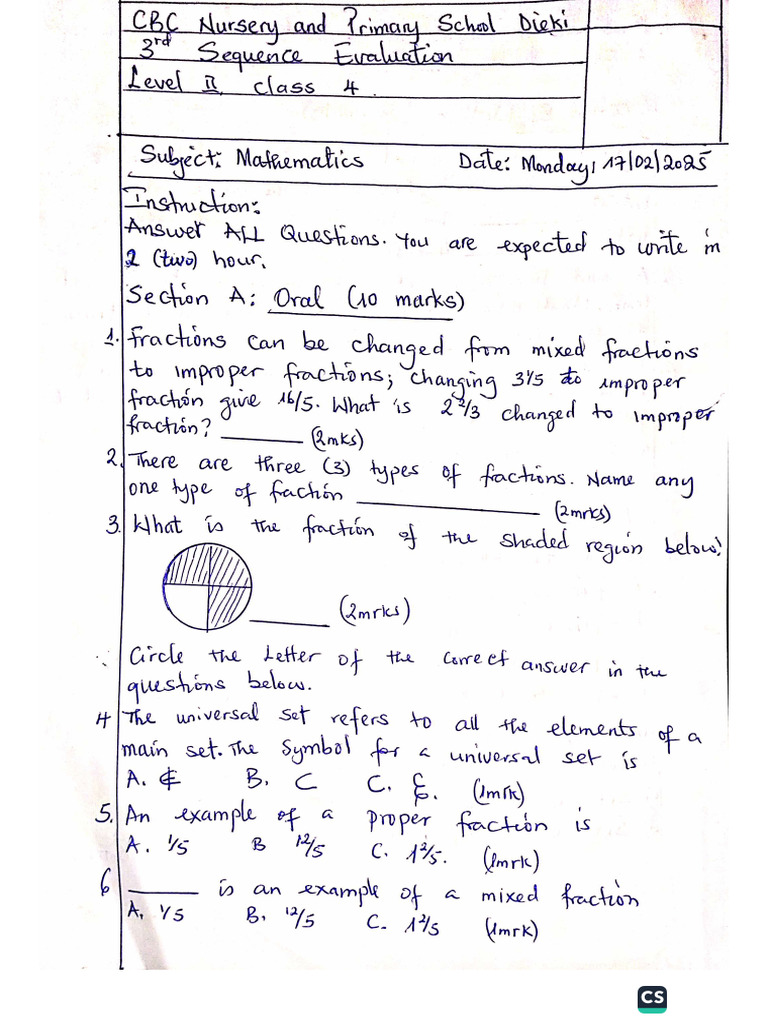 CBC Nursery and Primary School Dieki
3rd Sequence Evaluation
Level II class 4.
Subject: Mathematics Date: Monday, 17/02/2025
Instruction:
Answer ALL Questions. You are expected to write in
2 (two) hour.
Section A: Oral (10 marks)
1. Fractions can be changed from mixed fractions
to improper fractions; changing 3 1/5 to improper
fraction give 16/5. What is 2 2/3 changed to improper
fraction? ________ (2mks)
2. There are three (3) types of fractions. Name any
one type of fraction ________ (2mrks)
3. What is the fraction of the shaded region below?
________ (2mrks)
Circle the Letter of the correct answer in the
questions below.
4 The universal set refers to all the elements of a
main set. The Symbol for a universal set is
A. ⊄ B. C C. ξ. (1mrk)
5. An example of a proper fraction is
A. 1/5 B 12/5 C. 1 2/5. (1mrk)
6 ________ is an example of a mixed fraction
A, 1/5 B. 12/5 C. 1 2/5 (1mrk)
CS